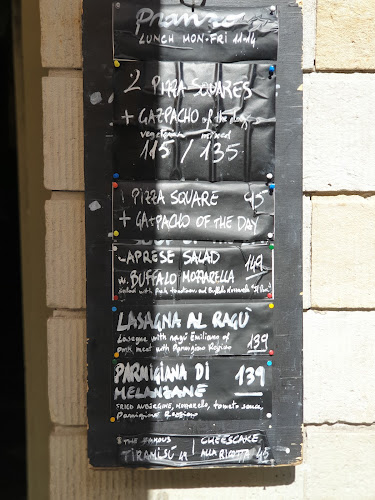 Pranzo
LUNCH MON-FRI 11-14
2 PIZZA SQUARES
+ GAZPACHO of the day
vegetarian mixed
115 / 135
1 PIZZA SQUARE 95
+ GAZPACHO OF THE DAY
CAPRESE SALAD 149
w. BUFFALO MOZZARELLA
Salad with fresh tomatoes and Buffalo Mozzarella
LASAGNA AL RAGÚ
Lasagne with ragú Emiliano of
pork meat with Parmigiano Reggiano 139
PARMIGIANA DI 139
MELANZANE
FRIED AUBERGINE, MOZZARELLA, tomato sauce,
Parmigiano Reggiano
THE FAMOUS CHEESCAKE
TIRAMISÚ ALLA RICOTTA 45